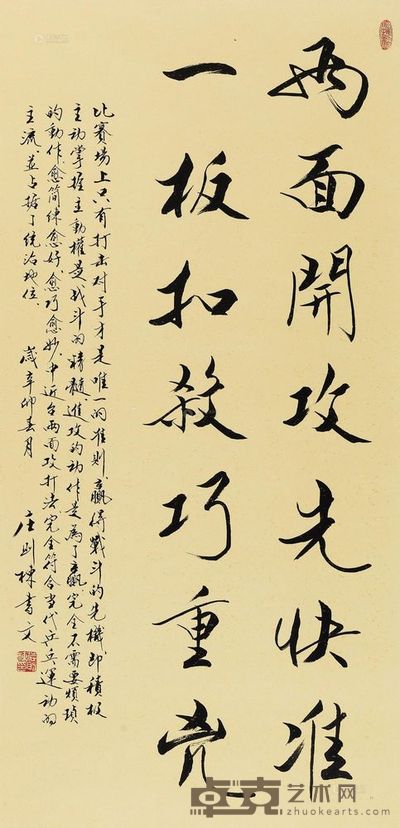 两面開攻先快准
一板扣殺巧重凶
比賽場上只有打击对手才是唯一的准则，贏得戰斗的先機即積极
主动掌握主動權是战斗的精髓，進攻的动作是為了贏，完全不需要煩琐
的動作，愈简练愈好，愈巧愈妙，中近台两面攻打法完全符合当代乒乓運动的
主流，並占據了统治地位。
歲辛卯春月
庄則栋書文
卓克艺术网
zhuokearts.com